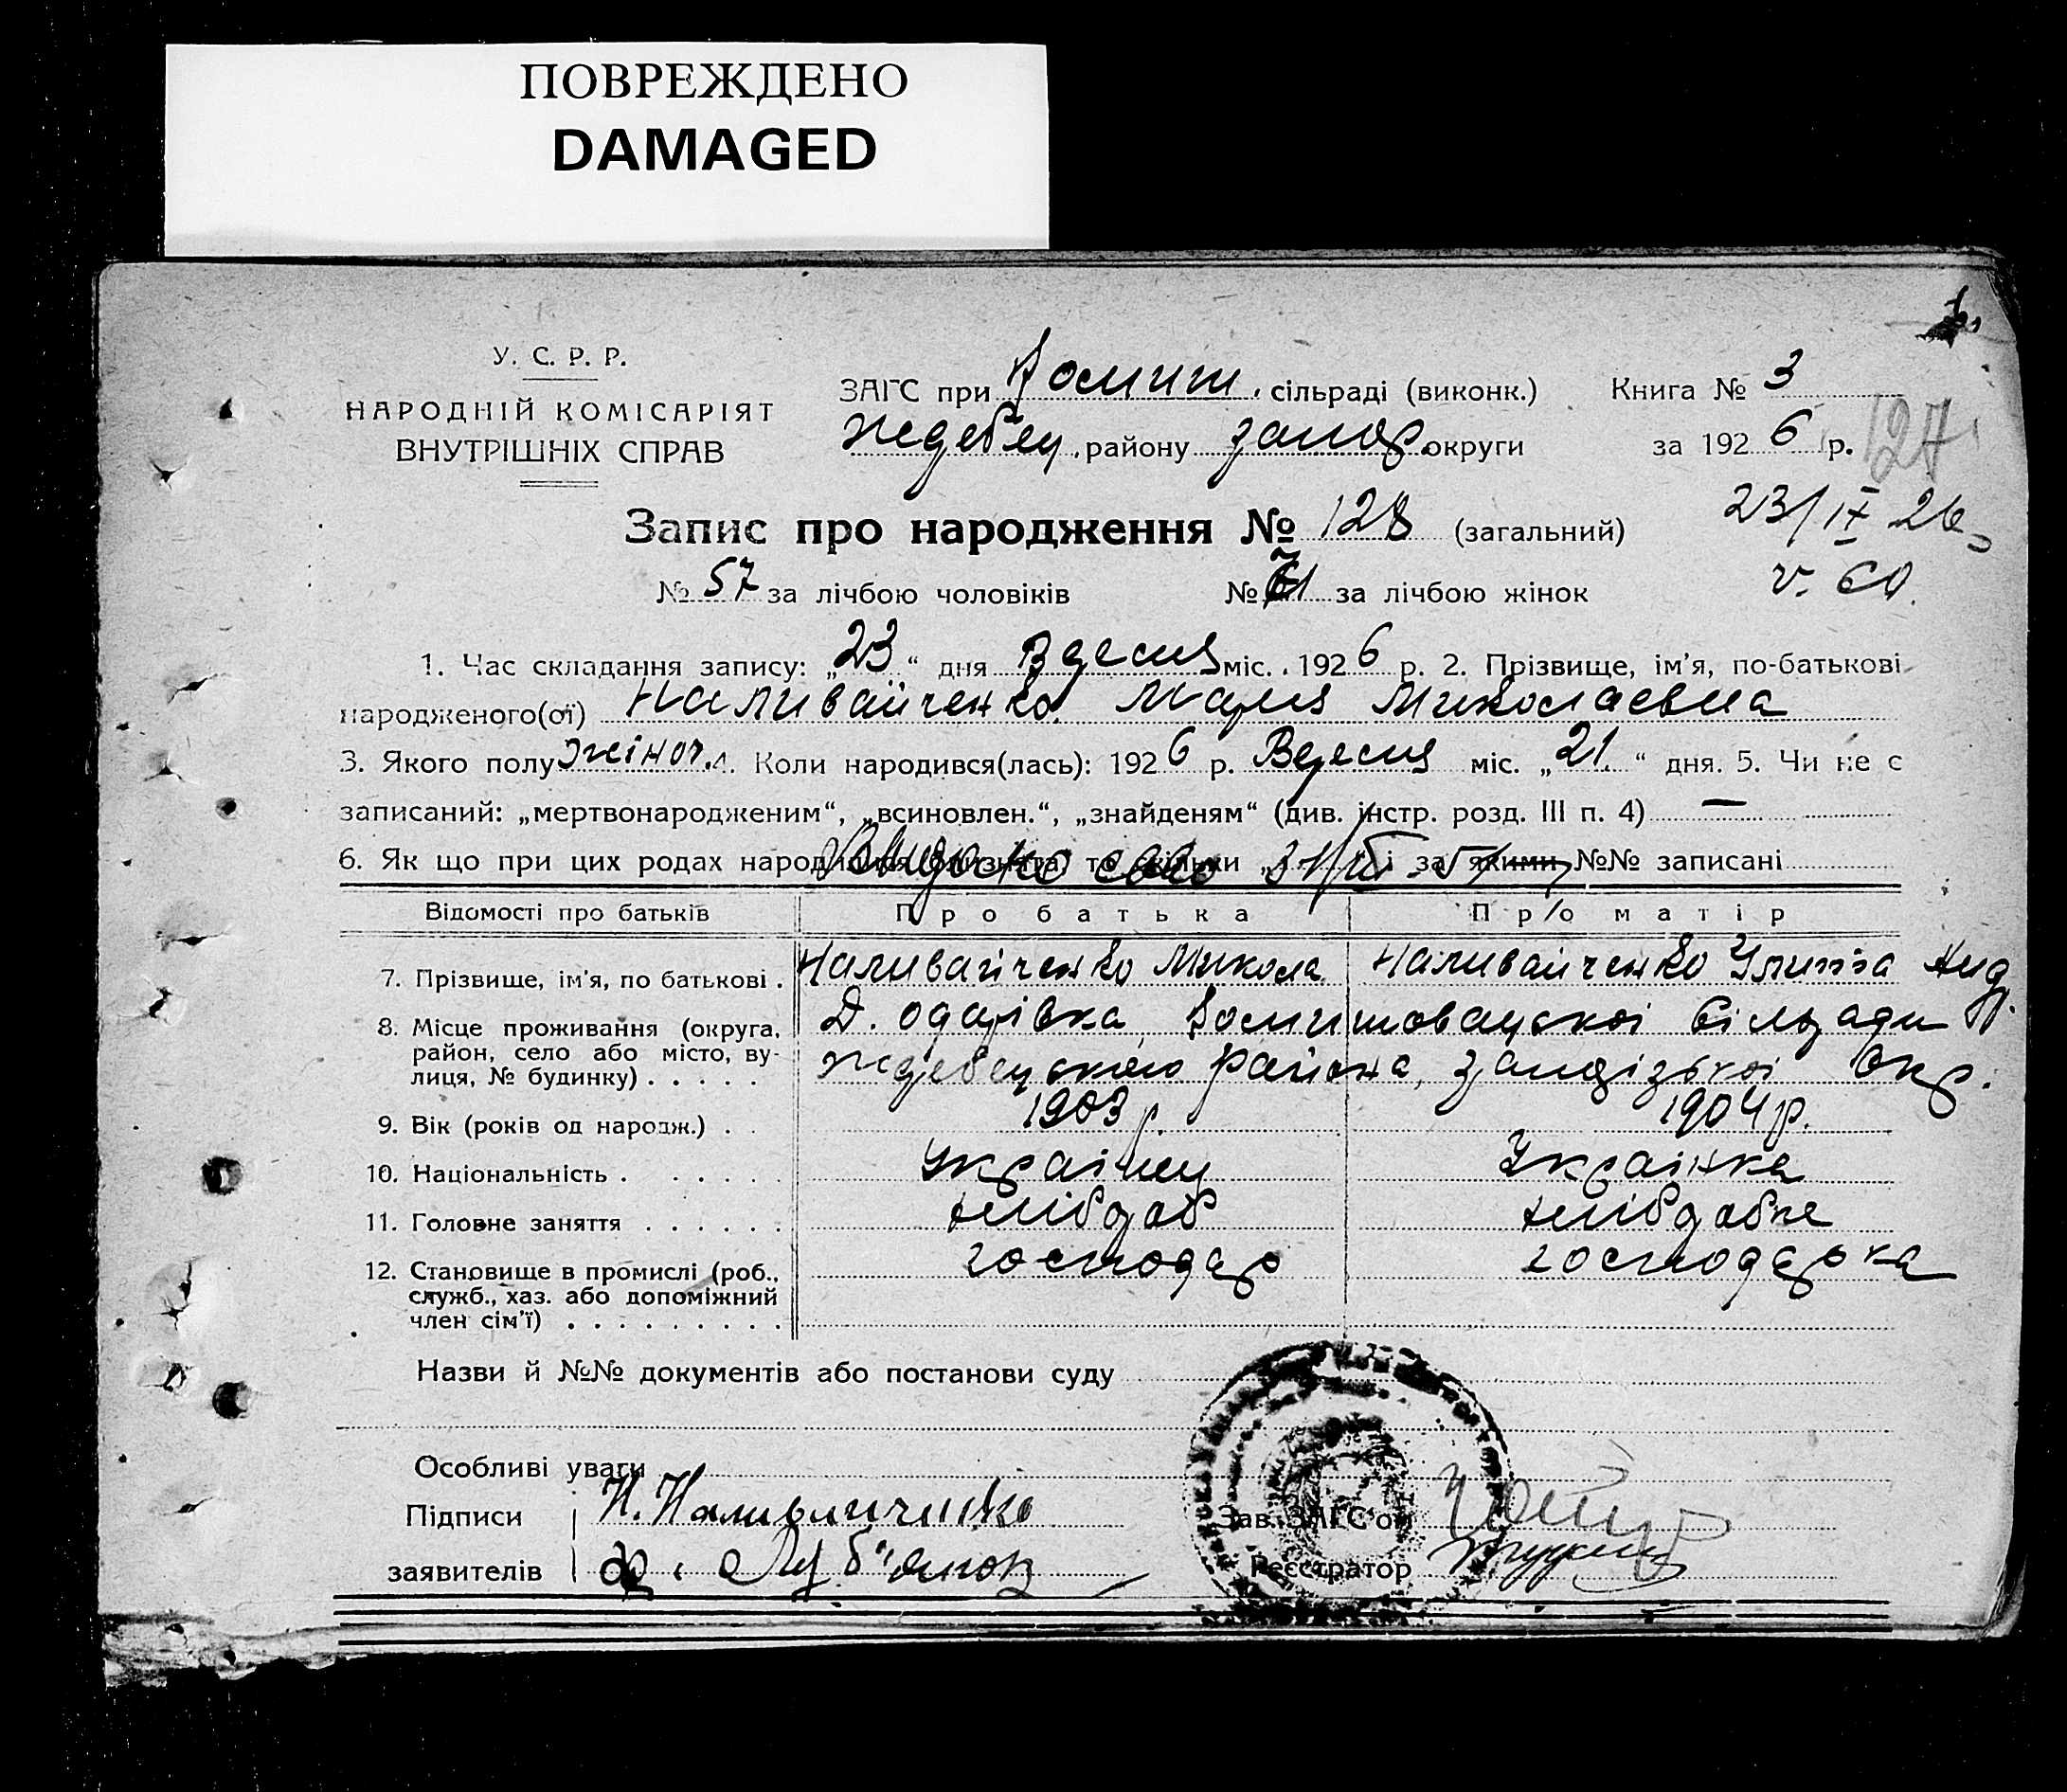 ПОВРЕЖДЕНО
DAMAGED
У. С. Р. Р.
НАРОДНІЙ КОМІСАРІЯТ
ВНУТРІШНІХ СПРАВ
ЗАГС при Комиш. сільраді (виконк.)
Жеребец. району Запор. округи
Книга № 3
за 1926 р.
127
Запис про народження № 128 (загальний)
23/IX 26
№ 57 за лічбою чоловіків № 71 за лічбою жінок
1. Час складання запису: „23“ дня Вересня міс. 1926 р. 2. Прізвище, ім’я, по-батькові
народженого(ої) Наливайченко Марія Миколаевна
3. Якого полу жіноч. 4. Коли народився(лась): 1926 р. Вересня міс. „21.“ дня. 5. Чи не є
записаний: „мертвонародженим“, „всиновлен.“, „знайденям“ (див. інстр. розд. III п. 4) —
6. Як що при цих родах народилися близнята, то скільки і за якими №№ записані
Відомості про батьків Про батька Про матір
7. Прізвище, ім’я, по батькові . Наливайченко Микола Наливайченко Улита Анд
8. Місце проживання (округа, район, село або місто, вулиця, № будинку) . . . . . Д. Одарівка Комишовацької Сільради
Жеребецького Района, Запорізької Окр.
9. Вік (років од народж.) . . 1903 р. 1904 р.
10. Національність . . . . . . Українец Українка
11. Головне заняття . . . . . . хлібороб хліборобка
12. Становище в промислі (роб., служб., хаз. або допоміжний член сім’ї) . . . . . . . . . господар господарка
Назви й №№ документів або постанови суду
Особливі уваги
Підписи
заявителів
Н. Наливайченко
Зав. ЗАГС’ом
Реєстратор